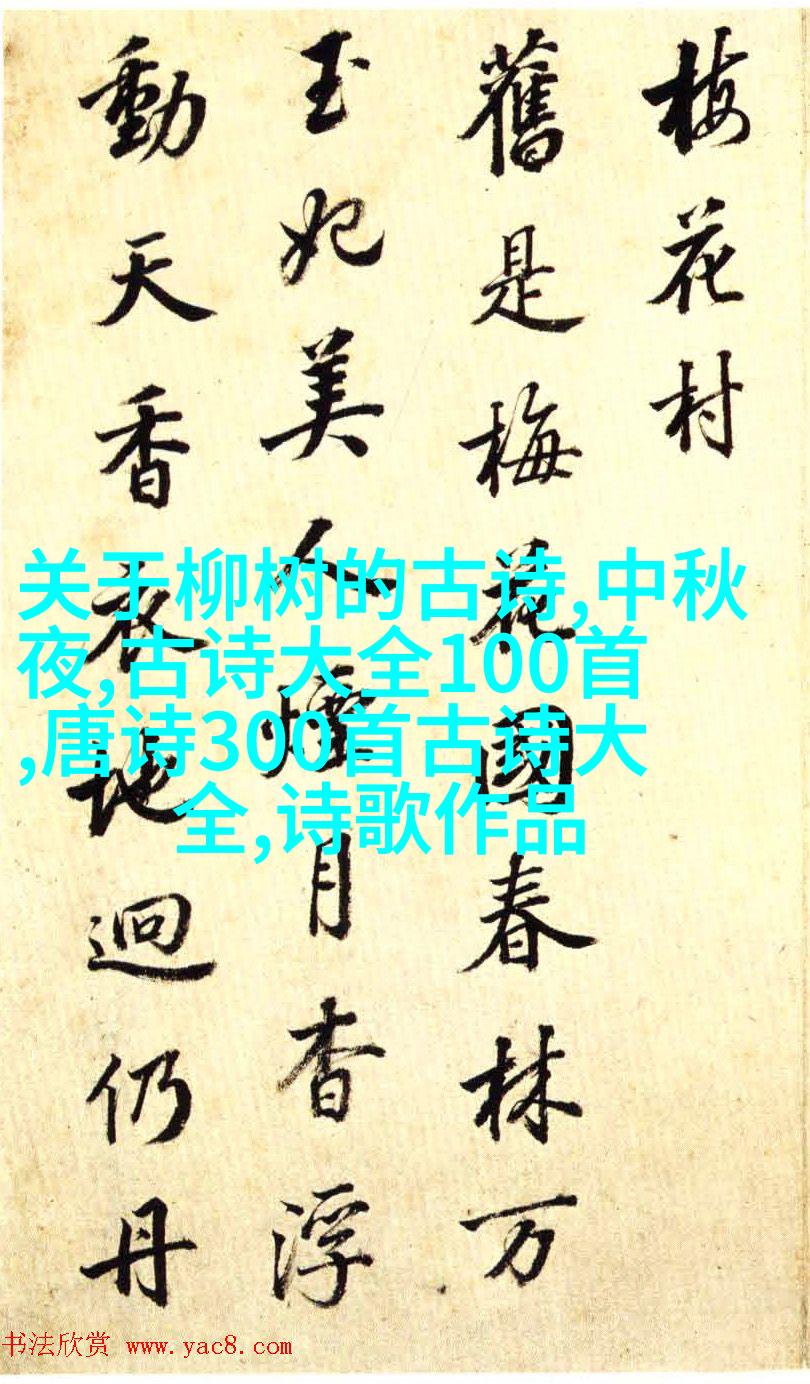 梅花村
舊是梅花國春林万
玉妃美人煙月杳浮
動天香衣地迥仍丹
关于柳树的古诗,中秋
夜,古诗大全100首
,唐诗300首古诗大
全,诗歌作品
书法欣赏 www.yac8.com